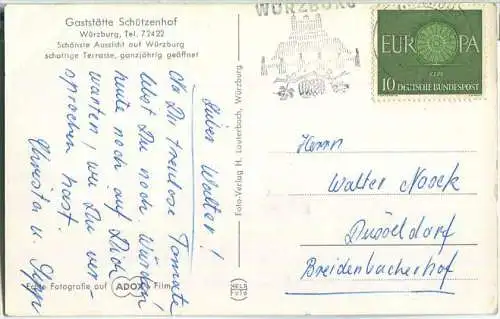 Gaststätte Schützenhof
Würzburg, Tel. 72422
Schönste Aussicht auf Würzburg
schattige Terrasse, ganzjährig geöffnet
Lieber Walter!
Du treulose Tomate
lebst Du noch. Würden
heute noch auf Dich
warten, wie Du ver-
sprochen hast.
Christa u. Sepp
Echte Fotografie auf ADOX Film
Foto-Verlag H. Lauterbach, Würzburg
WÜRZBURG
EUROPA
CEPT
10 DEUTSCHE BUNDESPOST
Herrn
Walter Noack
Düsseldorf
Breidenbacherhof